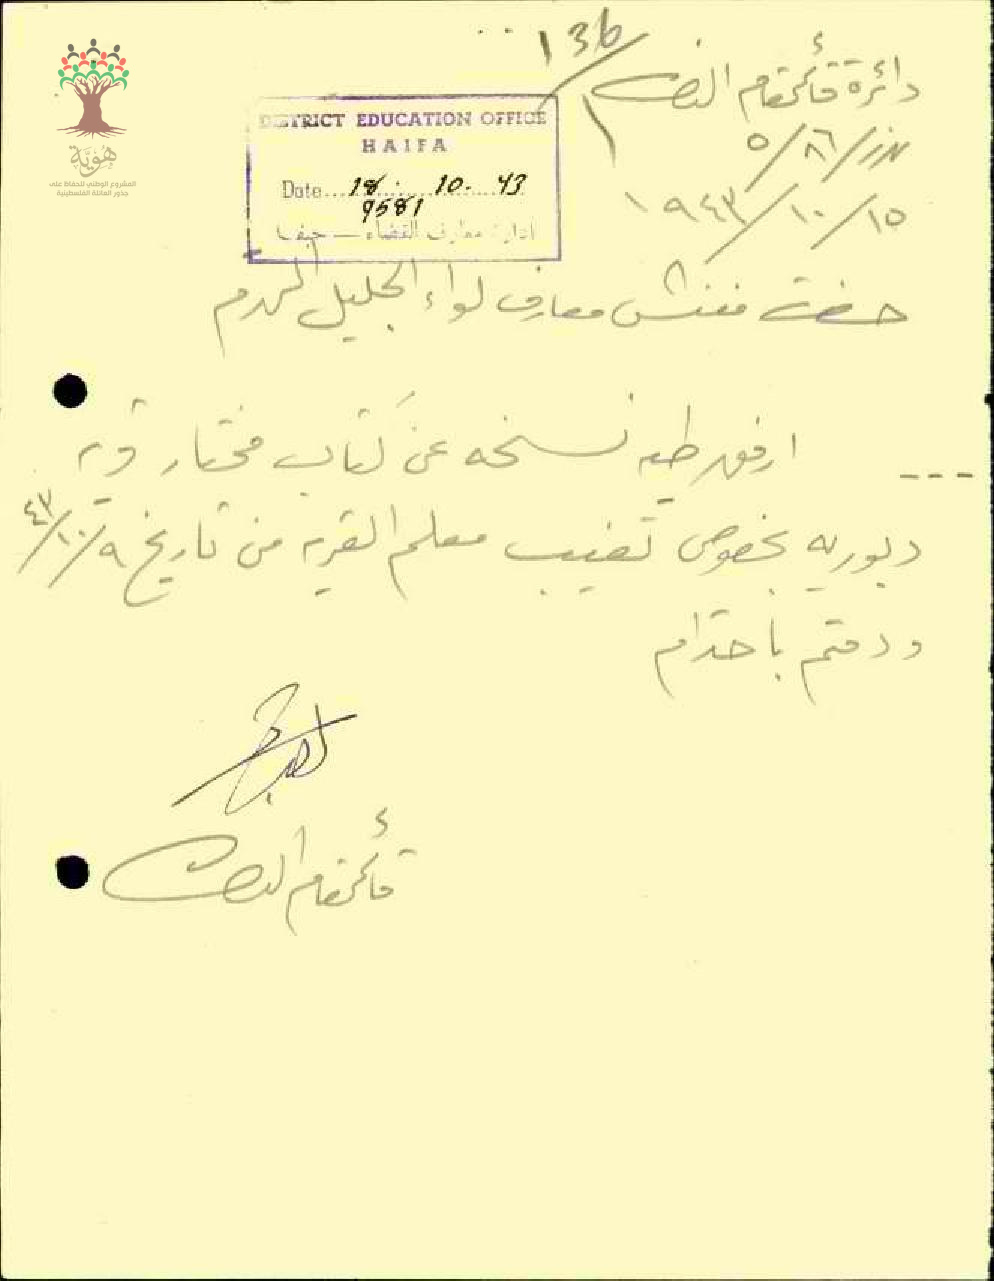 136/1
دائرة قائمقام الناصرة
نمرة ٥/٨٦
١٩٤٣/١٠/١٥
DISTRICT EDUCATION OFFICE
HAIFA
Date... 18. 10. 43
9581
ادارة معارف القضاء — حيفا
هُوِيَّة
المشروع الوطني للحفاظ على
جذور العائلة الفلسطينية
حضرت مفتش معارف لواء الجليل المحترم
ارفق طيه نسخه عن كتاب مختار قرية
دبوريه بخصوص تغيب معلم القريه من تاريخ ٤٣/١٠/٩
ودمتم باحترام
قائمقام الناصرة